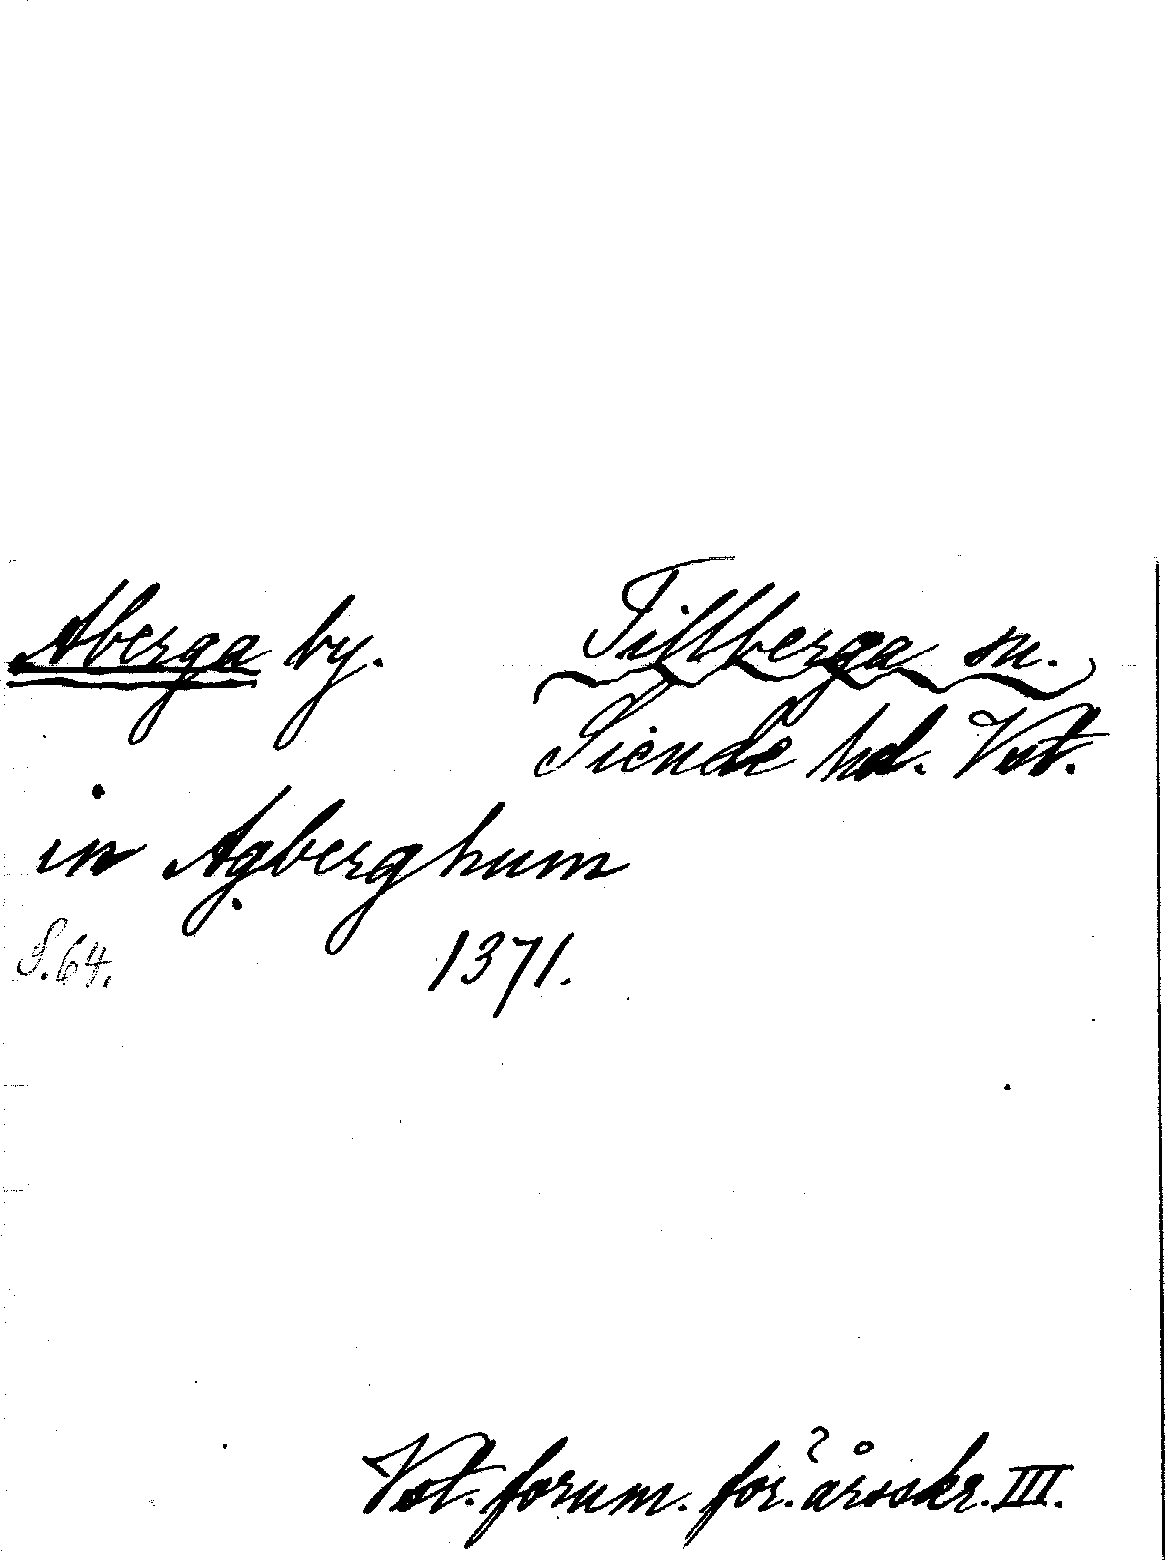 Aberga by. Tillberga sn.
Siende hd. Vst.
in Agberghum
S. 64. 1371.
Vst. fornm. för:s årsskr. III.